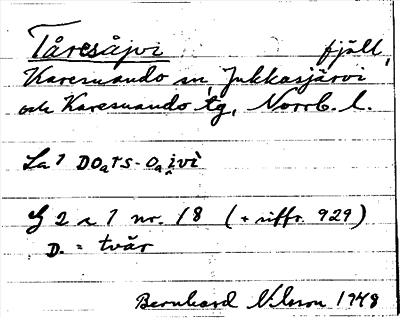 Tåresåjvi fjäll,
Karesuando sn, Jukkasjärvi
och Karesuando tg, Norrb. l.
La 1 DOars-oaivì
G 2 a 1 nr. 18 (+ siffr. 929)
D. = tvär
Bernhard Nilsson 1948